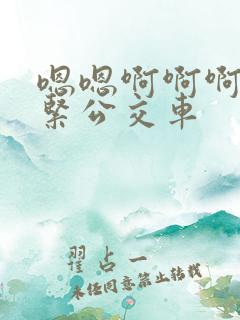 嗯嗯啊啊啊
紧公交车
翟占一
未经同意禁止转载